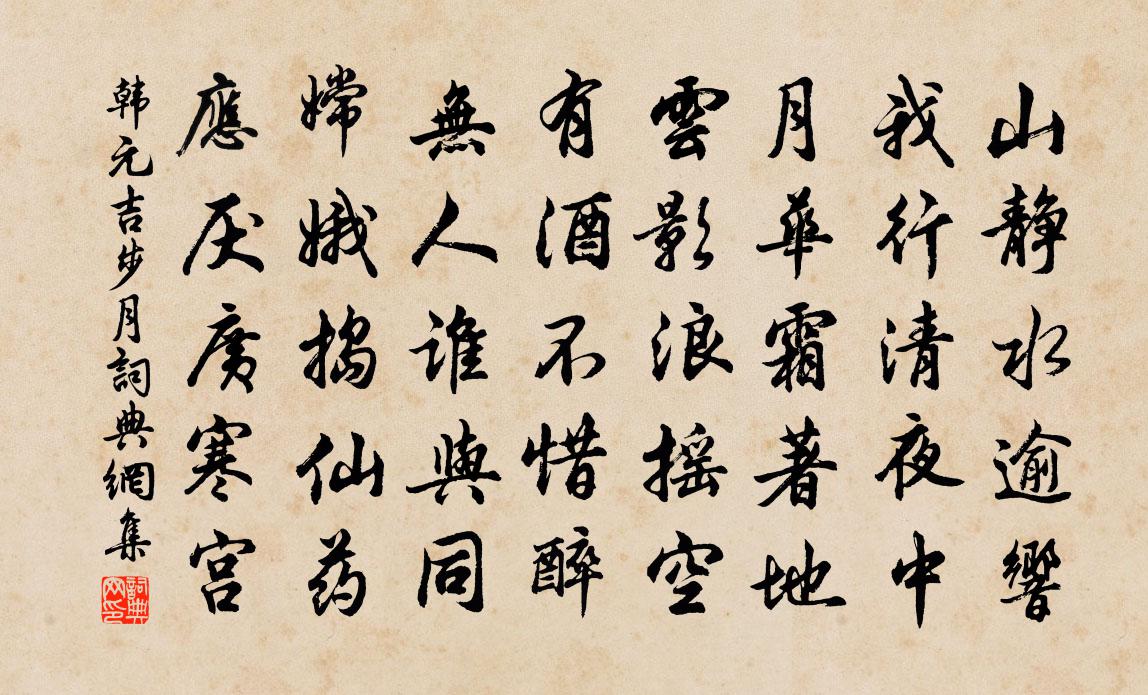 山靜水逾響
我行清夜中
月華霜著地
雲影浪摇空
有酒不惜醉
無人誰與同
嫦娥搗仙药
應厌廣寒宫
韩元吉步月詞典網集
詞典网印